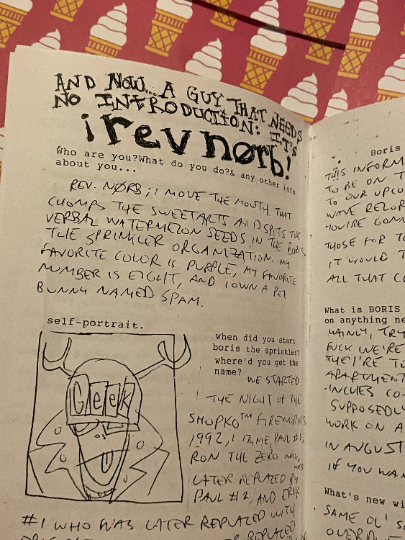 AND NOW... A GUY THAT NEEDS
NO INTRODUCTION: IT'S
¡revnørb!
Who are you?What do you do?& any other info
about you...
REV. NØRB; I MOVE THE MOUTH THAT
CHOMPS THE SWEETARTS AND SPITS THE
VERBAL WATERMELON SEEDS IN THE BORIS
THE SPRINKLER ORGANIZATION. MY
FAVORITE COLOR IS PURPLE, MY FAVORITE
NUMBER IS EIGHT, AND I OWN A PET
BUNNY NAMED SPAM.
self-portrait.
GEEK
when did you start
boris the sprinkler?
where'd you get the
name?
WE STARTED
THE NIGHT OF THE
SHOPKO™ FIREWORKS
1992, ME, PAUL #1,
RON THE ZERO
LATER REPLACED BY
PAUL #2, AND ERIK
#1 WHO WAS LATER REPLACED WITH
Boris
THIS INFORM
TO BE ON T
TO OUR UPCO
WAVE RECOR
YOU'RE GONN
THOSE FOR T
IT WOULD T
ALL THAT CO
What is BORIS
on anything new
MAINLY, TRY
FUCK WE'RE
THEY'RE TO
APARTMENT
-INCHES CO
SUPPOSEDLY
WORK ON A
IN AUGUST
IF YOU WAN
What's new wi
SAME OL' S